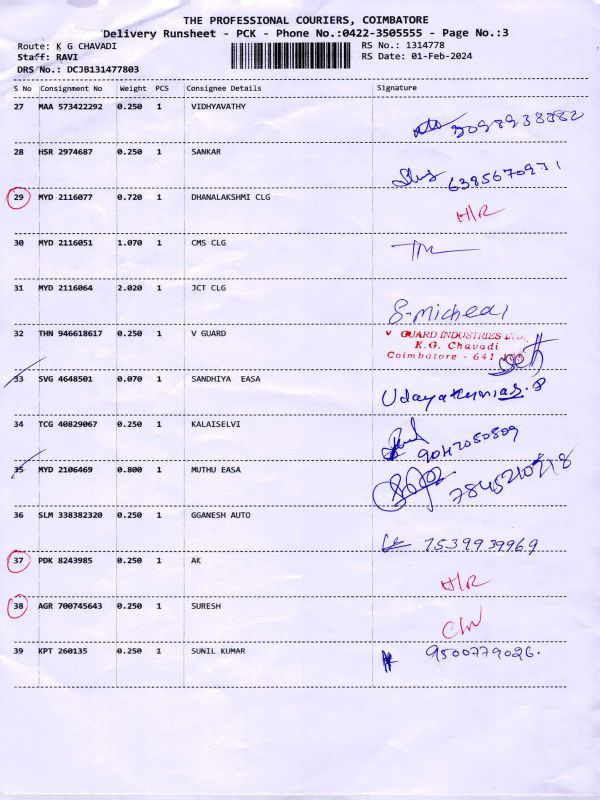 THE PROFESSIONAL COURIERS, COIMBATORE
Delivery Runsheet - PCK - Phone No.:0422-3505555 - Page No.:3
Route: K G CHAVADI RS No.: 1314778
Staff: RAVI RS Date: 01-Feb-2024
DRS No.: DCJB131477803
S No Consignment No Weight PCS Consignee Details Signature
27 MAA 573422292 0.250 1 VIDHYAVATHY
28 HSR 2974687 0.250 1 SANKAR
6385670971
29 MYD 2116077 0.720 1 DHANALAKSHMI CLG
H/R
30 MYD 2116051 1.070 1 CMS CLG
31 MYD 2116064 2.020 1 JCT CLG
S. micheal
32 THN 946618617 0.250 1 V GUARD
V GUARD INDUSTRIES LTD.,
K.G. Chavadi
Coimbatore - 641
33 SVG 4648501 0.070 1 SANDHIYA EASA
Udayakumar. P
34 TCG 40829067 0.250 1 KALAISELVI
9047050809
35 MYD 2106469 0.800 1 MUTHU EASA
7845210718
36 SLM 338382320 0.250 1 GGANESH AUTO
7539939969
37 PDK 8243985 0.250 1 AK
H/R
38 AGR 700745643 0.250 1 SURESH
39 KPT 260135 0.250 1 SUNIL KUMAR
9500779026.